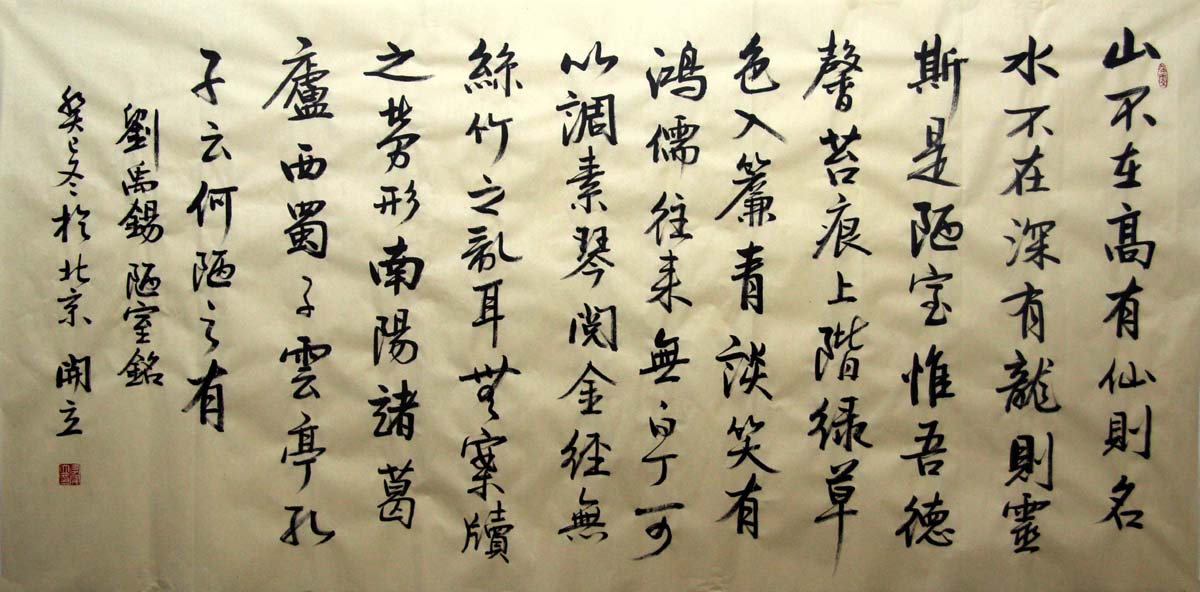 山不在高有仙則名
水不在深有龍則靈
斯是陋室惟吾德
馨苔痕上階緑草
色入簾青談笑有
鴻儒往来無白丁可
以調素琴閱金經無
絲竹之亂耳無案牘
之勞形南陽諸葛
廬西蜀子雲亭孔
子云何陋之有
劉禹錫 陋室銘
癸巳冬於北京 開立